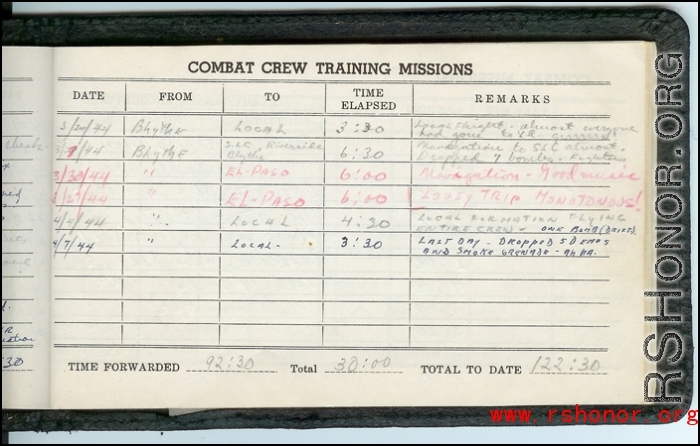 COMBAT CREW TRAINING MISSIONS
DATE FROM TO TIME ELAPSED REMARKS
3/20/44 Blythe LOCAL 3:30 Local Flight - almost everyone
had gone to
/44 BLYTHE S.L.C. Riverside Blythe 6:30 Navigation to SLC almost.
Dropped 7 bombs.
3/23/44 " EL-PASO 6:00 Navigation - Good music
3/27/44 " EL-PASO 6:00 LOUSY TRIP MONOTONOUS!
4/4/44 " LOCAL 4:30 LOCAL FORMATION FLYING
ENTIRE CREW - ONE BOMB
4/7/44 " LOCAL. 3:30 LAST DAY - DROPPED 5 DEMOS
AND SMOKE GRENADE - AH HA.
:30
TIME FORWARDED 92:30 Total 30:00 TOTAL TO DATE 122:30
RSHONOR.ORG
www.rshonor.org